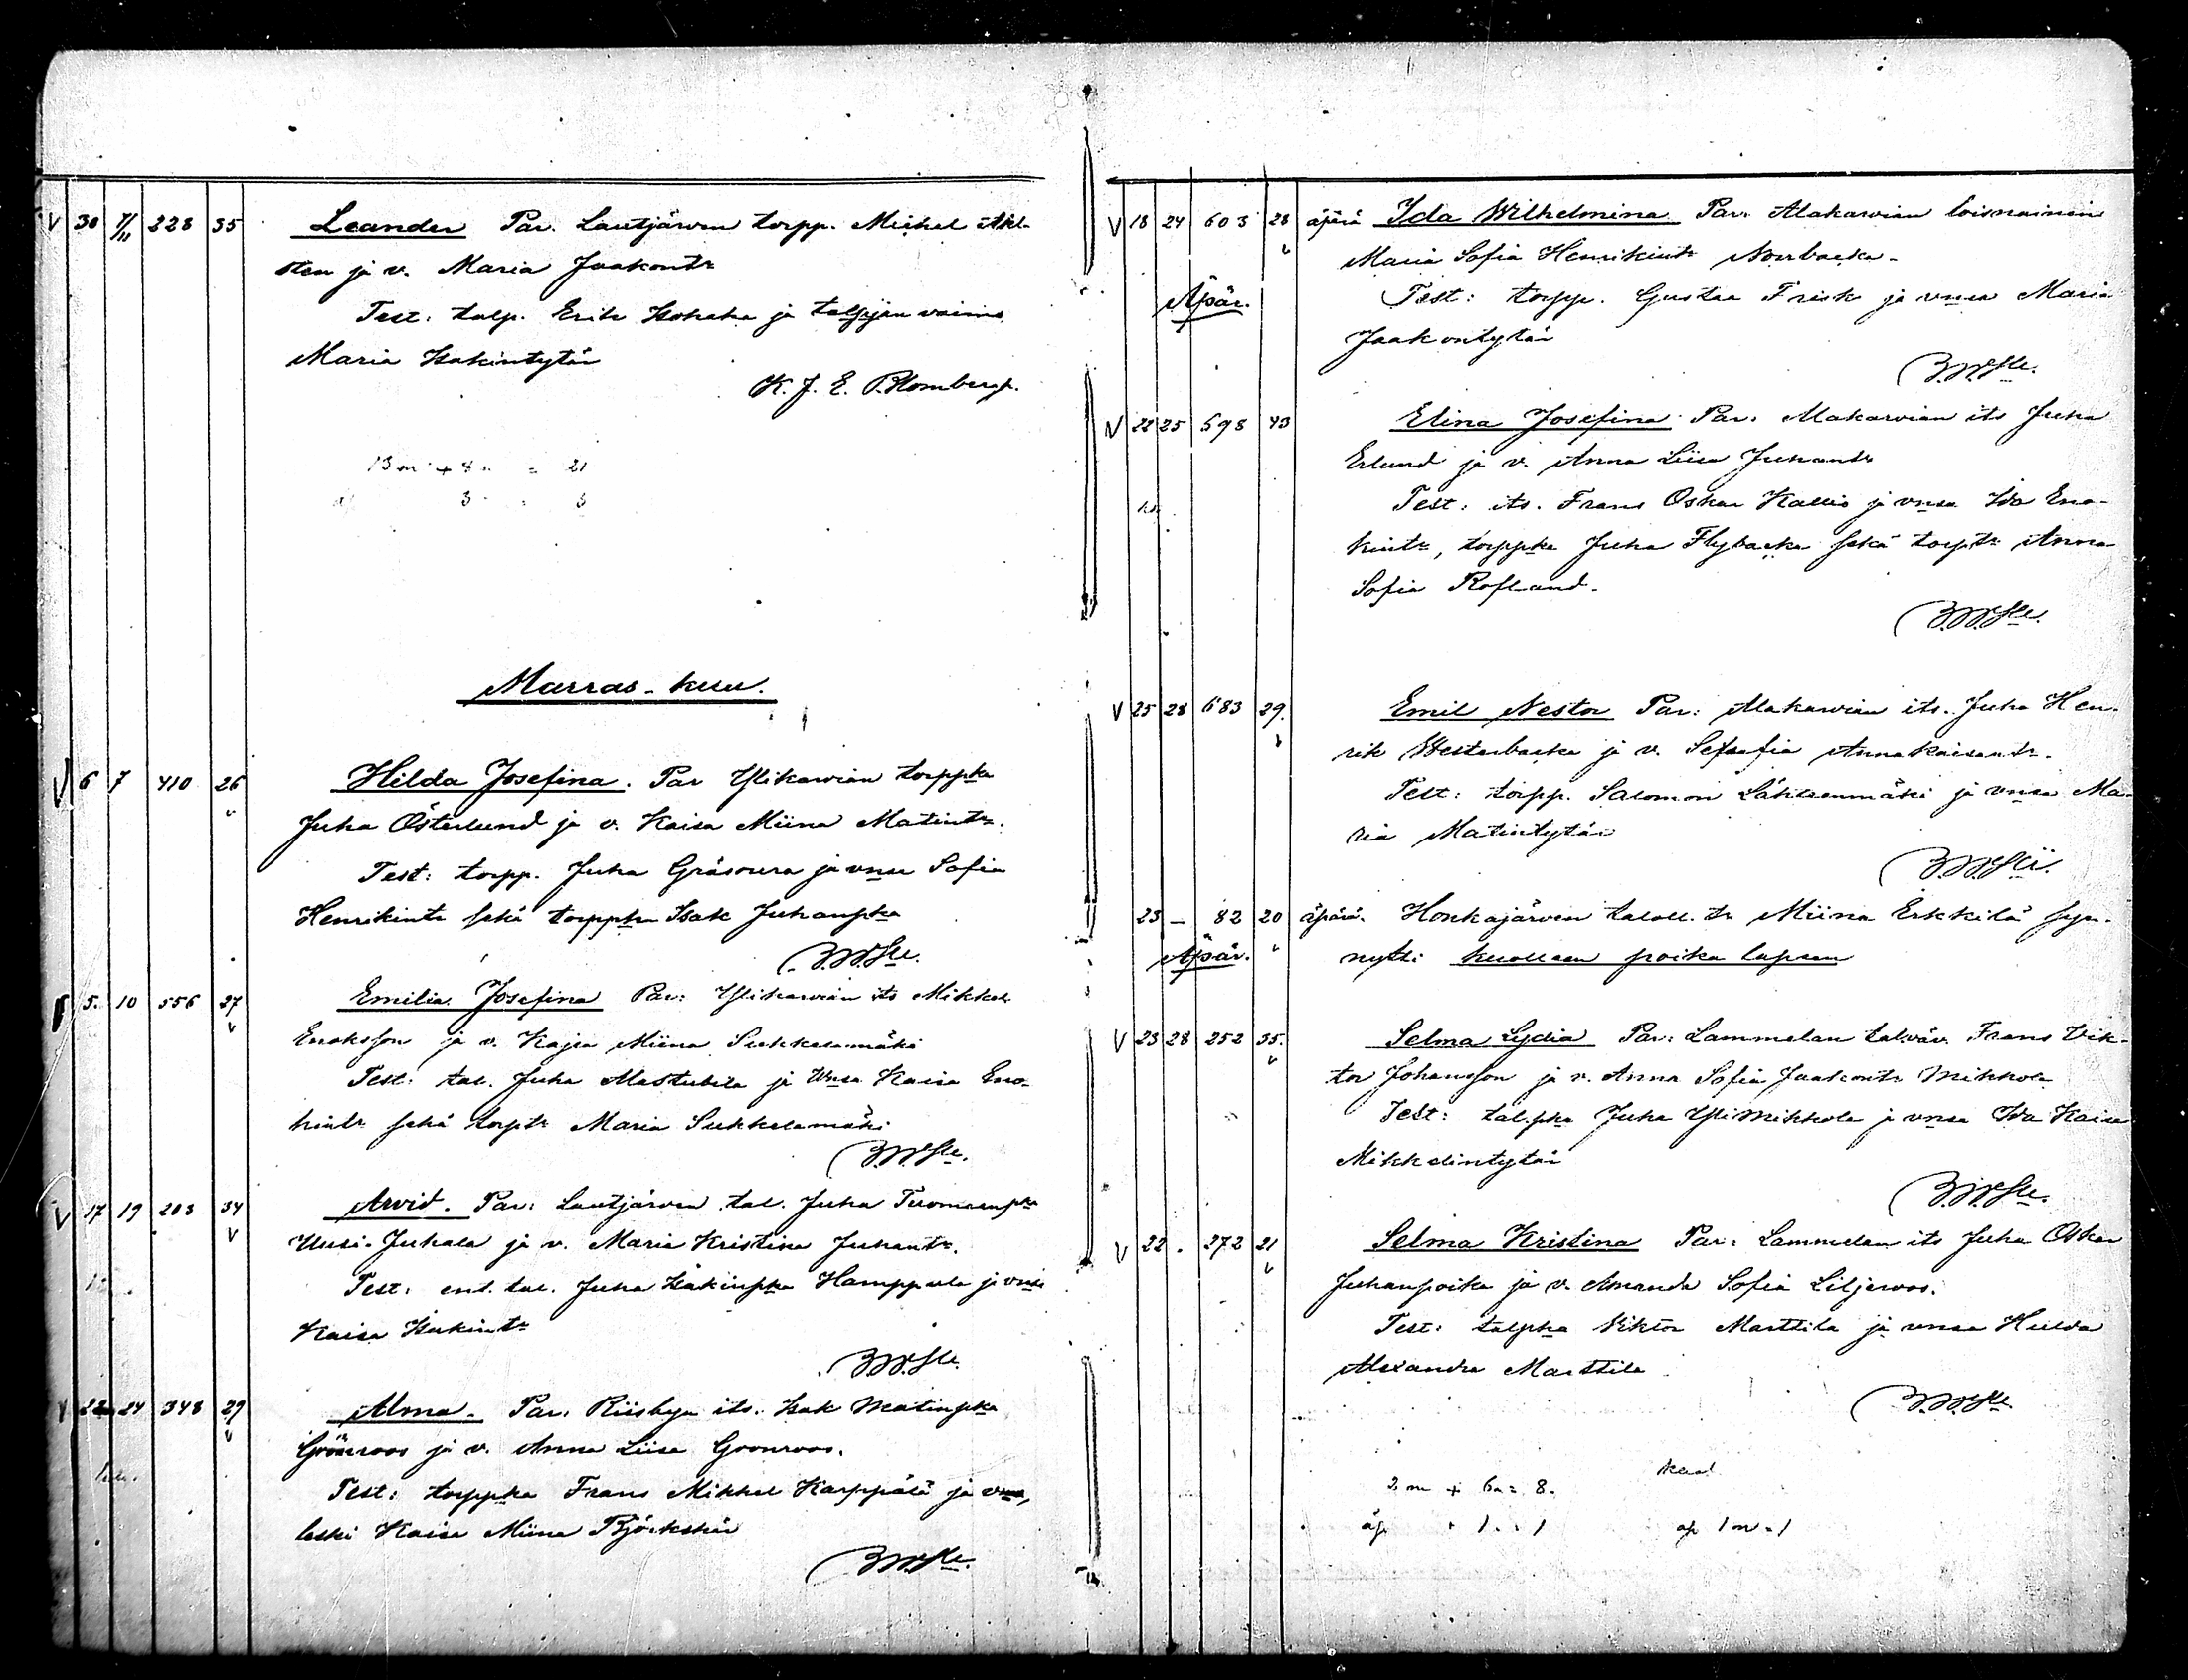 V 30 7/11 228 35 Leander Par. Lautjärven torpp. Michel Ahl-
sten ja v. Maria Jaakontr
Test: talp. Erik Isohaka ja talpjan vaimo
Maria Isakintytär
K. J. E. Blomberg.
13 m + 8 = 21
3 3
Marras-kuu.
V 6 7 410 26 Hilda Josefina. Par Ylikarvian torppka
Juha Österlund ja v. Kaisa Miina Matintr.
Test: torpp. Juha Gräsoura ja vnsa Sofia
Henrikintr sekä torppka Isak Juhanpka
5. 10 556 27 Emilia Josefina Par: Ylikarvian its Mikkel
Enoksson ja v. Kajsa Miina Sukkelamäki
Test: tal. Juha Mastubila ja vnsa Kaisa Eno-
kintr sekä torptr Maria Sukkelamäki
V 17 19 203 34 Arvid. Par: Lautjärven tal. Juha Tuomaanpka
Uusi-Jukala ja v. Maria Kristina Juhantr.
Test: ent. tal. Juha Isakinpka Hamppula ja vnsa
Kaisa Isakintr
V 22 24 348 29 Alma. Par: Riisbyn its. Isak Matinpka
Grönroos ja v. Anna Liisa Gronroos.
Test: torppka Frans Mikkel Karppälä ja
leski Kaisa Miina Björkskär
V 18 24 603 28 äpärä Ida Wilhelmina Par: Alakarvian loisnainen
Maria Sofia Henrikintr Norrbacka.
Äpär.
Test: torpp. Gustaa Frisk ja vnsa Maria
Jaakontytär
V 22 25 598 43 Elina Josefina Par: Alakarvian its Juha
Erlund ja v. Anna Liisa Juhantr
Test: its. Frans Oskar Kallio ja vnsa Ida Eno-
kintr, torppka Juha Flybacka sekä torptr Anna
Sofia Rosslund.
V 25 28 683 29. Emil Nestor Par: Alakarvian its. Juha Hen-
rik Westerbacka ja v. Sefaafia Annakaisantr.
Test: torpp. Salomon Lähteenmäki ja vnsa Ma-
ria Matintytär
23 — 82 20 äpärä. Honkajärven taloll. tr Miina Erkkilä syn-
Äpär. nytti kuolleen poika lapsen
V 23 28 252 35. Selma Lydia Par: Lammelan talväv. Frans Vik-
tor Johansson ja v. Anna Sofia Jaakontr Mikkola
Test: talpka Juha Ylimikkola ja vnsa Ida Kaisa
Mikkelintytär
V 22 . 272 21 Selma Kristina Par: Lammelan its Juha Oskar
Juhanpoika ja v. Amanda Sofia Liljeroos.
Test: talpka Viktor Marttila ja vnsa Hulda
Alexandra Marttila
2 m + 6 n = 8.
äp. 1 . 1 äp 1 m . 1